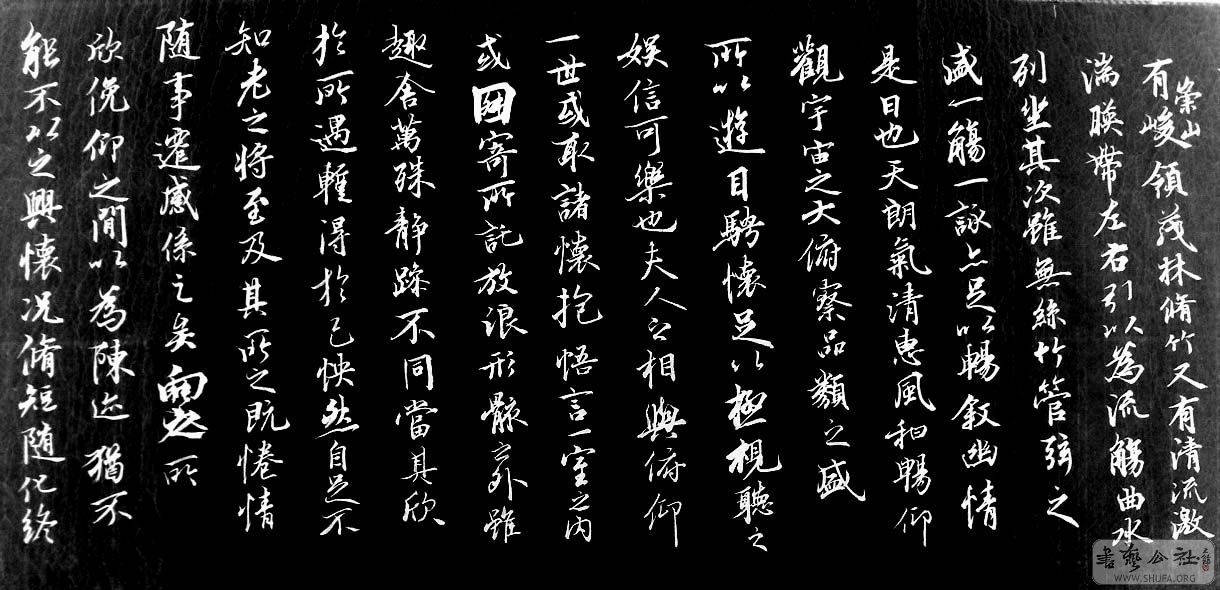 有崇山峻領茂林脩竹又有清流激
湍暎帶左右引以為流觴曲水
列坐其次雖無絲竹管弦之
盛一觴一詠亦足以暢敘幽情
是日也天朗氣清惠風和暢仰
觀宇宙之大俯察品類之盛
所以遊目騁懷足以極視聽之
娛信可樂也夫人之相與俯仰
一世或取諸懷抱悟言一室之內
或因寄所託放浪形骸之外雖
趣舍萬殊靜躁不同當其欣
於所遇暫得於己怏然自足不
知老之將至及其所之既惓情
随事遷感係之矣向之所
欣俛仰之間以為陳迹猶不
能不以之興懷況脩短随化終
書藝公社
WWW.SHUFA.ORG